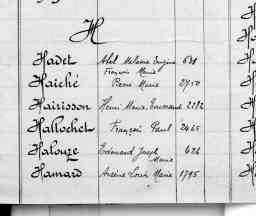 H
Hadet Abel Melaine Eugène 631
François Marie
Haiché Pierre Marie 2750
Hairisson Henri Marie Emmanuel 2282
Hallochet François Paul 2465
Halouze Edouard Joseph 626
Marie
Hamard Arsène Louis Marie 1795